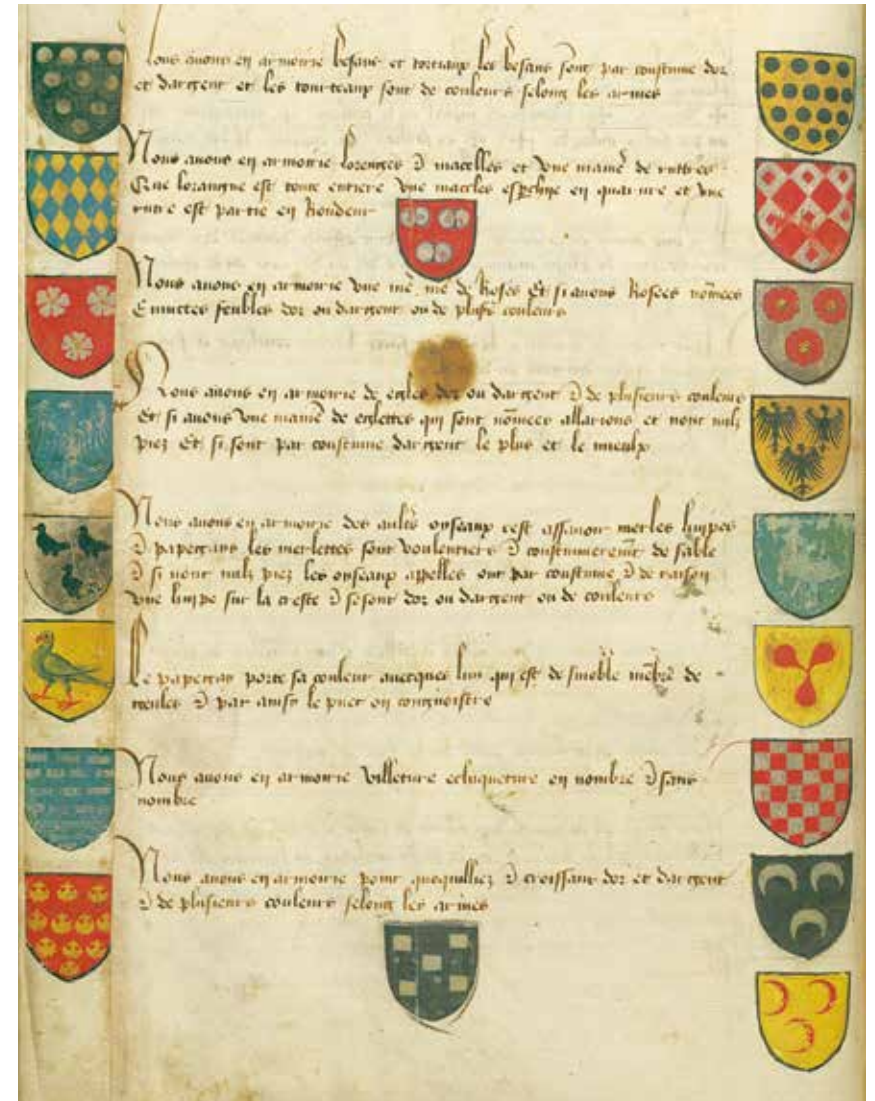 Nous auons en armoirie besans et torteaux les besans sont par coustume dor
et dargent et les tourteaux sont de couleurs selong les armes
Nous auons en armoirie lozenges & macelles et vne maniere de ruttres
Que lozangne est toute entiere vne macles en quarrure et vne
rutre est partie en Rondeur
Nous auons en armoirie vne de Roses Et si auons Rosees nōmees
feubles dor ou dargent ou de couleurs
Nous auons en armoirie de egles dor ou dargent & de plusieurs couleurs
Et si auons vne maniē de eglettes qui sont nōmees allarions et nont nulz
piez Et si sont par coustume dargent le plus et le mieulx
Nous auons en armoirie des aultres oyseaux cest assauoir merles huppes
& papegays les merlettes sont voulentiers & de sable
& si nont nulz piez les oyseaux appelles ont par coustume & de raison
vne huppe sur la creste & se sont dor ou dargent ou de couleurs
Le papegay porte sa couleur auecques luy qui est de sinoble mēbre de
gueules & par ainsy le puet on congnoistre
Nous auons en armoirie villeture en nombre & sans
nombre
Nous auons en armoirie point & croissans dor et dargent
& de plusieurs couleurs selong les armes